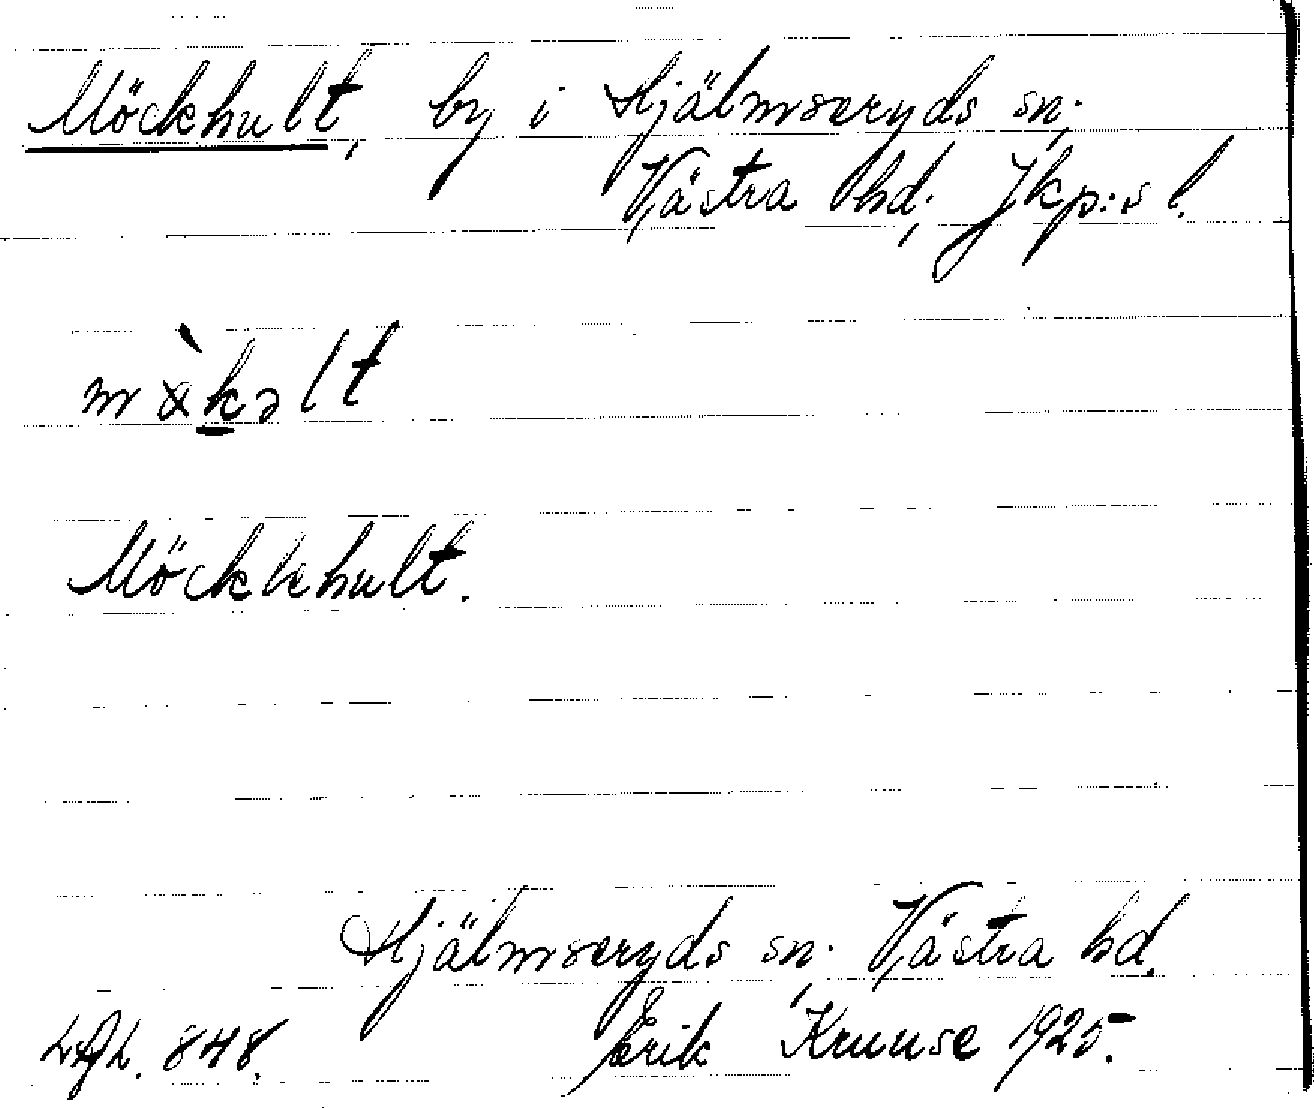 Möckhult, by i Hjälmseryds sn;
Västra hd; Jkp:s l.
mø̀kəlt
Möckhult.
Hjälmseryds sn; Västra hd.
848. Erik Kruuse 1925.